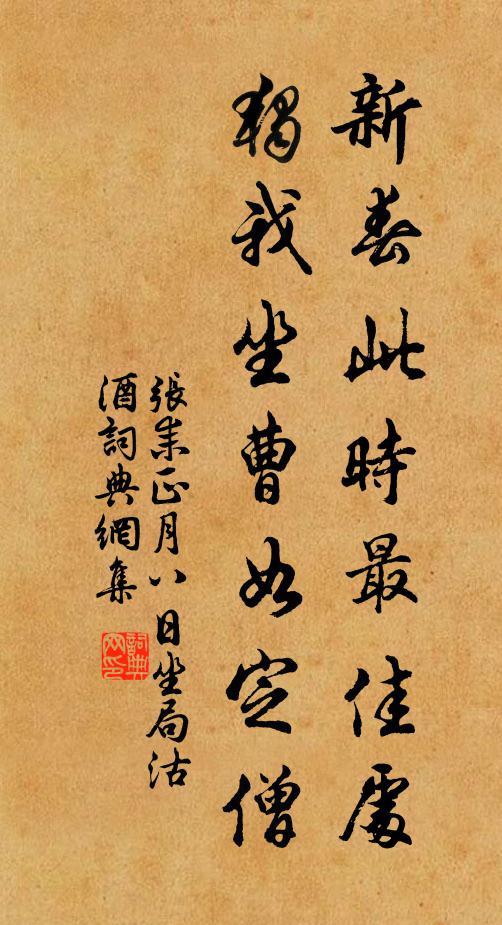 新春此時最佳處
獨我坐曹如定僧
張耒正月八日坐局沽
酒詞典網集
詞典網印